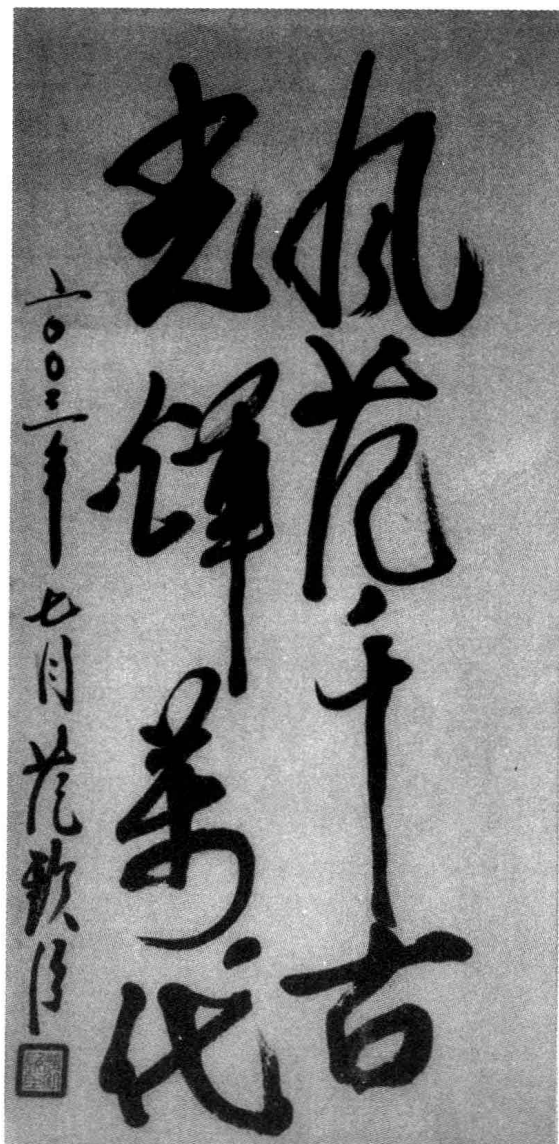 风范千古
光辉万代
二〇〇三年七月 范敬宜